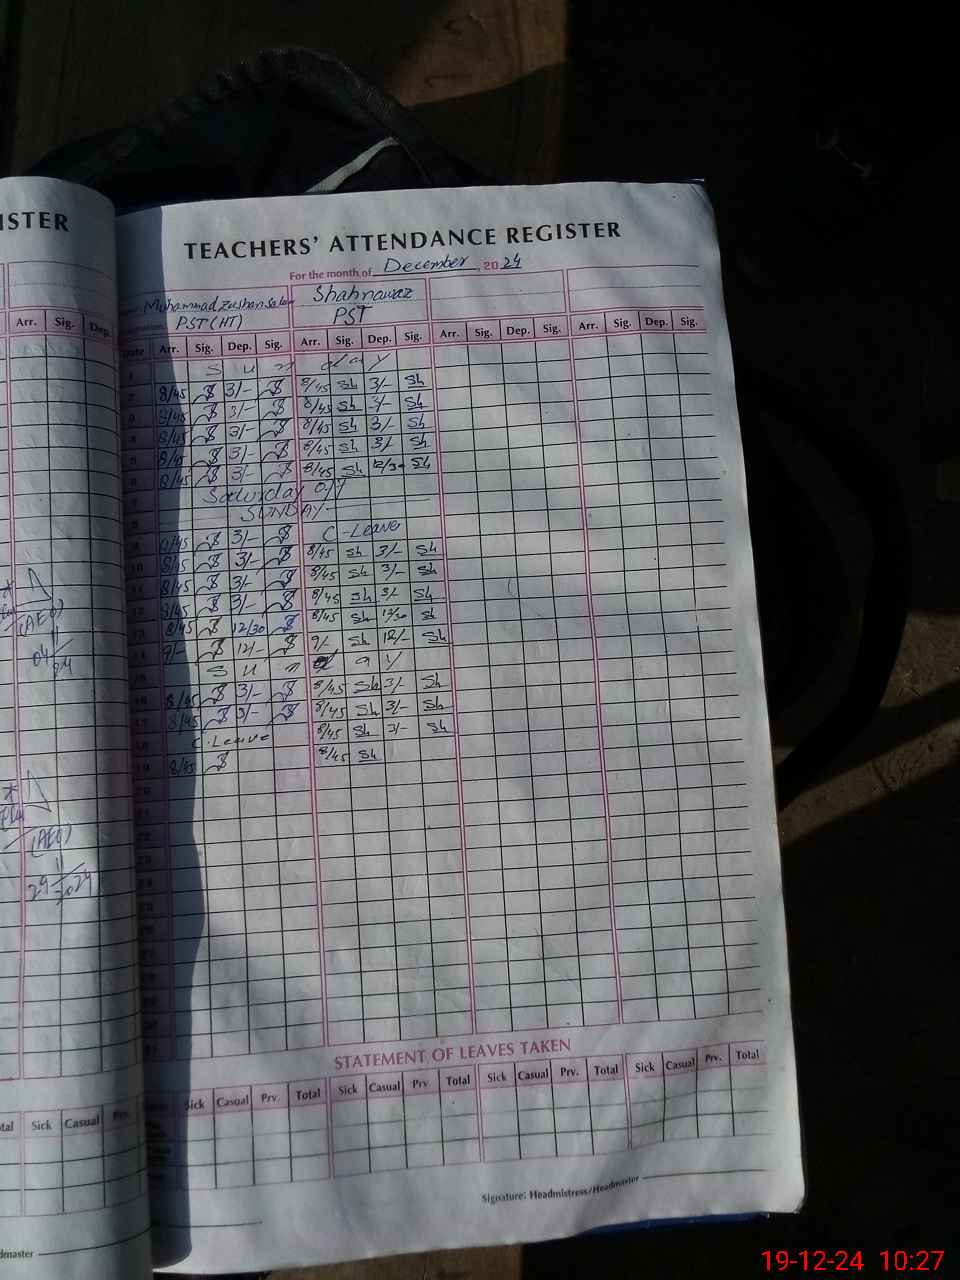 ISTER
TEACHERS' ATTENDANCE REGISTER
For the month of December, 2024
Muhammad Zeeshan Salam Shahnawaz
PST (HT) PST
Arr. Sig. Dep.
Date Arr. Sig. Dep. Sig. Arr. Sig. Dep. Sig. Arr. Sig. Dep. Sig. Arr. Sig. Dep. Sig.
1 S u n d a y
2 8/45 3/- 8/45 Sh 3/- Sh
3 8/45 3/- 8/45 Sh 3/- Sh
4 8/45 3/- 8/45 Sh 3/- Sh
5 8/45 3/- 8/45 Sh 3/- Sh
6 8/45 3/- 8/45 Sh 12/30 Sh
7 Saturday Off
8 SUNDAY
9 8/45 3/- C-Leave
10 8/45 3/- 8/45 Sh 3/- Sh
11 8/45 3/- 8/45 Sh 3/- Sh
12 8/45 3/- 8/45 Sh 3/- Sh
13 8/45 12/30 8/45 Sh 12/30 Sh
14 9/- 12/- 9/- Sh 12/- Sh
15 S u n d a y
16 8/45 3/- 8/45 Sh 3/- Sh
17 8/45 3/- 8/45 Sh 3/- Sh
18 C-Leave 8/45 Sh 3/- Sh
19 8/45 8/45 Sh
20
21
22
23
24
25
26
27
28
29
30
31
(AEO)
(AEO)
STATEMENT OF LEAVES TAKEN
Sick Casual Prv. Total Sick Casual Prv. Total Sick Casual Prv. Total Sick Casual Prv. Total
tal Sick Casual Prv.
Signature: Headmistress/Headmaster
dmaster
19-12-24 10:27